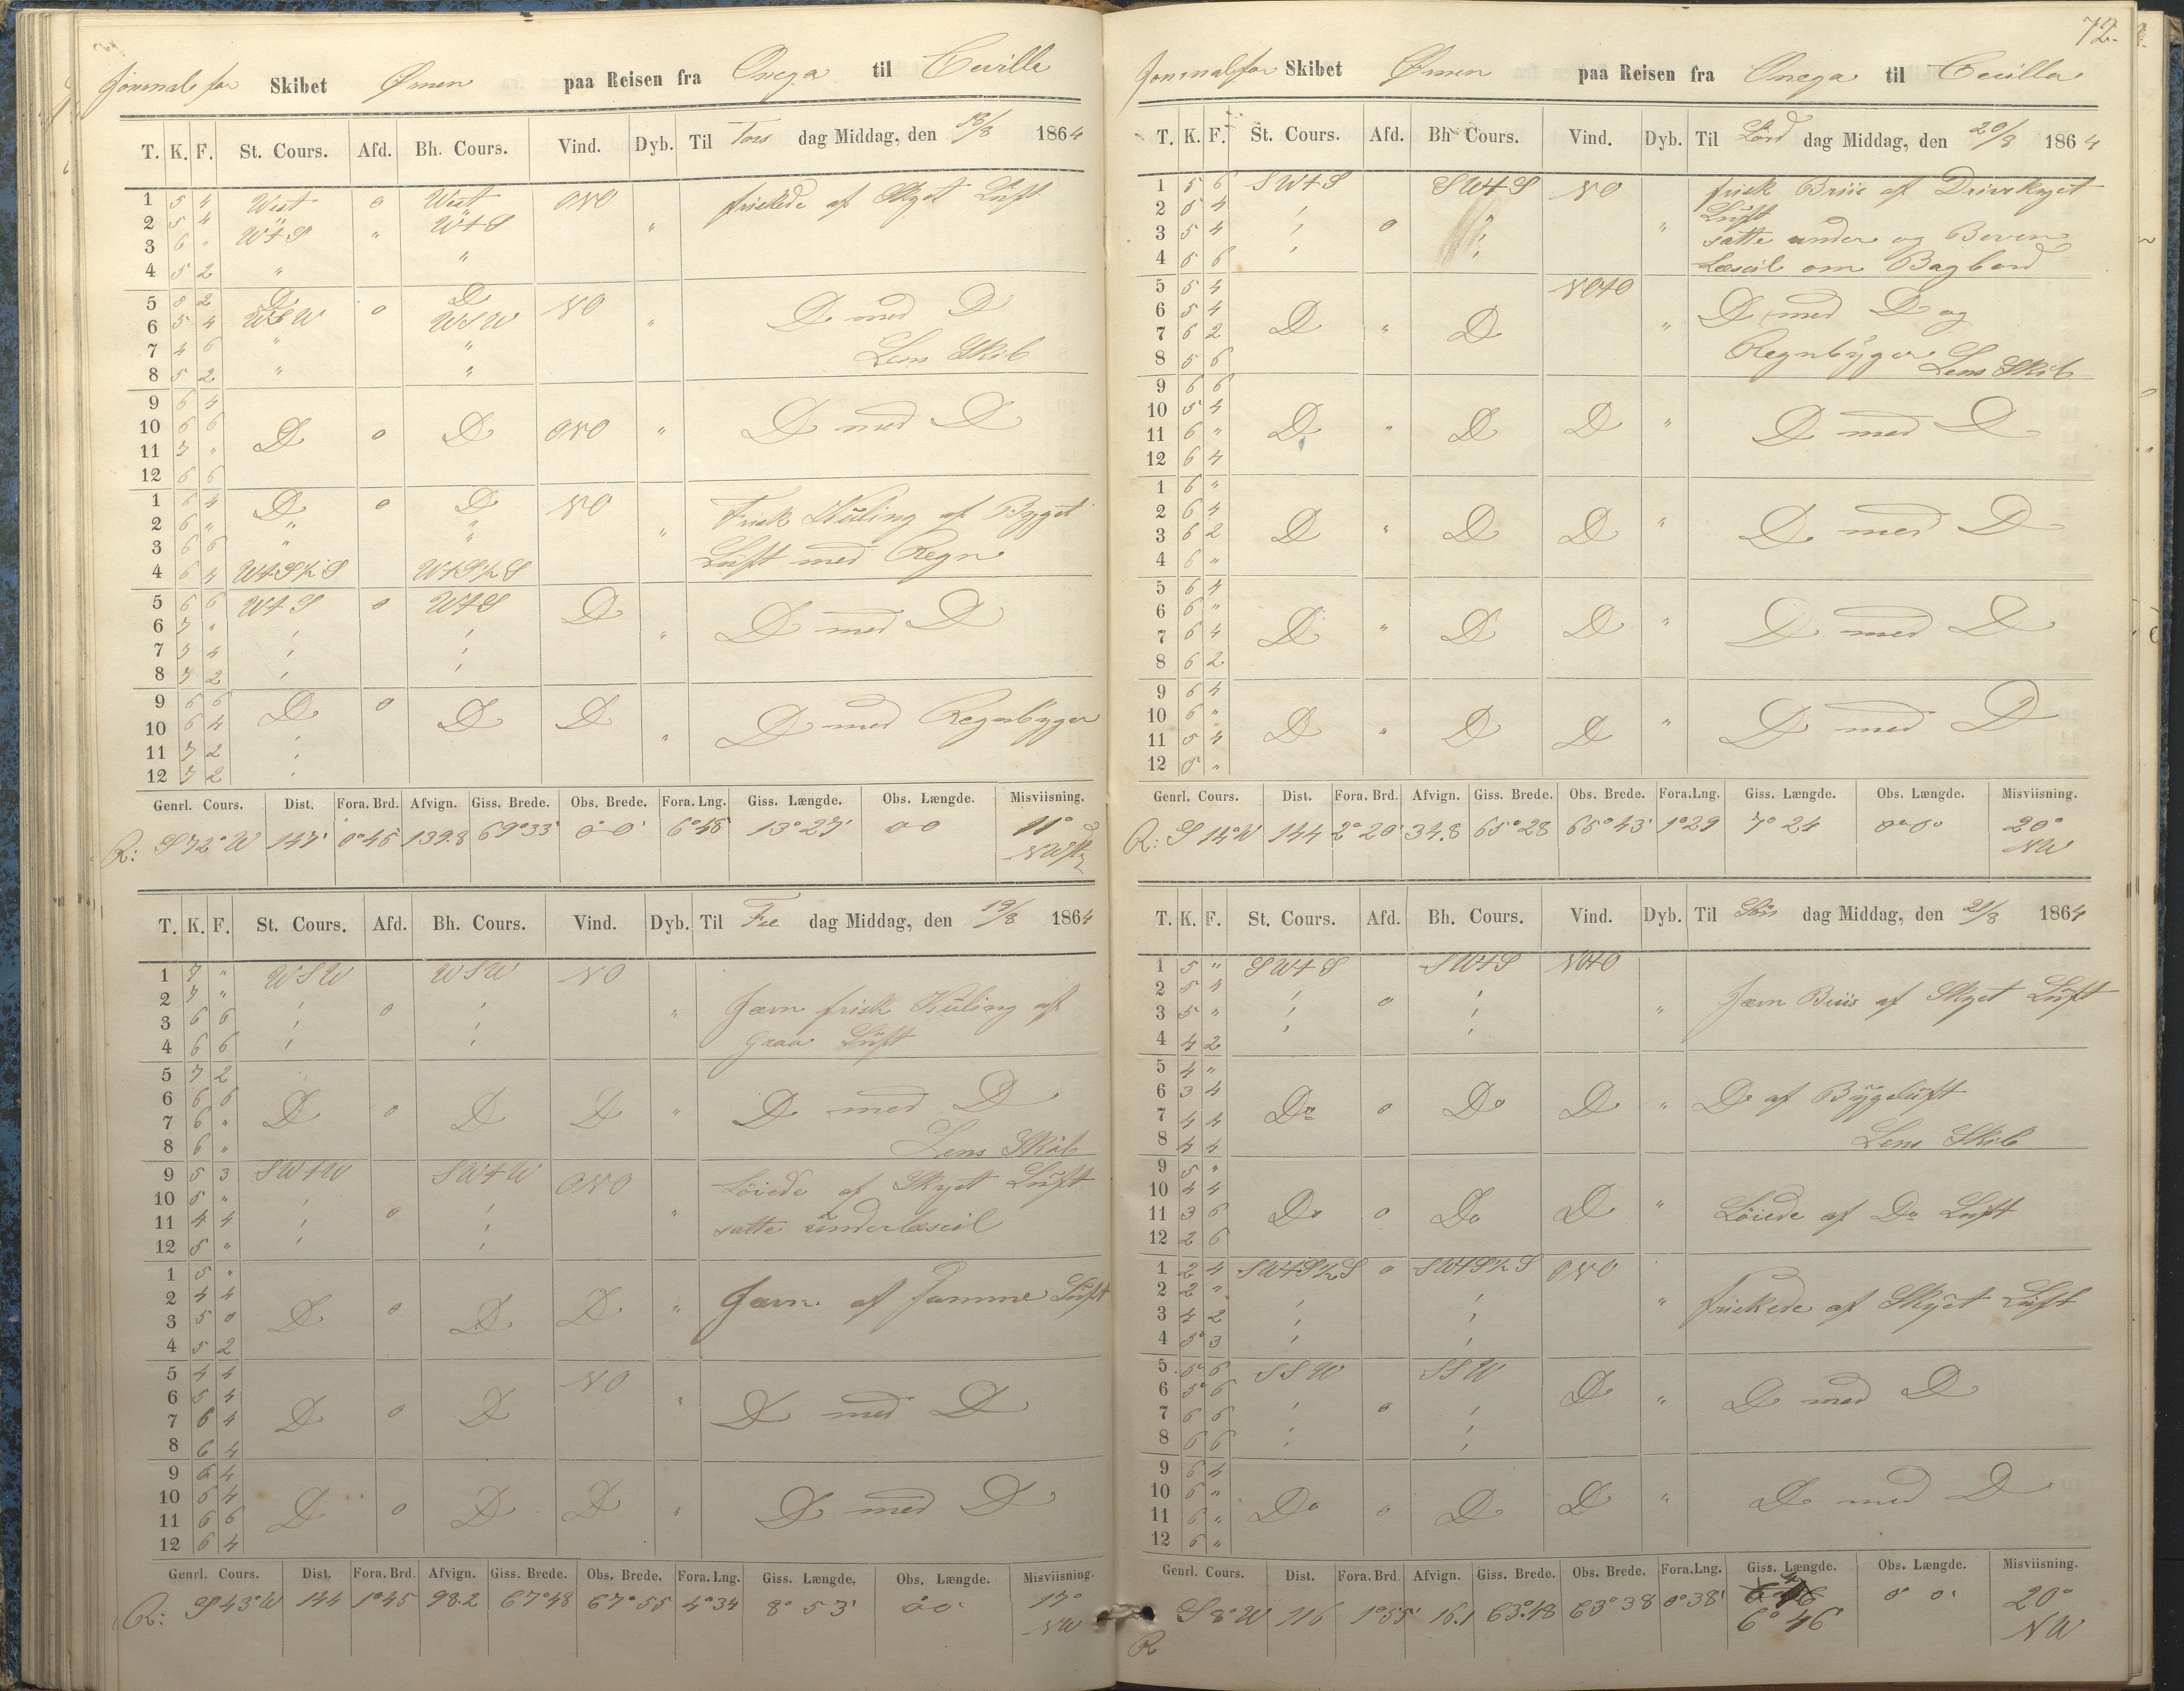 72.
Journal for Skibet Ørnen paa Reisen fra Onega til Cevilla
T. K. F. St. Cours. Afd. Bh. Cours. Vind. Dyb. Til Tors dag Middag, den 18/8 1864
1 5 " West 0 West ONO friskede af Skyet Luft
2 5 4 " " "
3 6 " W t S " W t S
4 5 2 " "
5 5 2 D 0 D NO D med D
6 5 4 WSW WSW "
7 4 6 " " Lens Skib
8 5 2 " "
9 6 4
10 6 6 D 0 D ONO " D med D
11 7 "
12 6 6
1 6 4 D 0 D NO Frisk Kuling af Byget
2 6 " " " "
3 6 6 " " Luft med Regn
4 6 4 WtS½S WtS½S
5 6 6 W t S 0 W t S D
6 7 " " D med D
7 7 4
8 7 2
9 6 6 D 0 D D D med Regnbyger
10 6 4 "
11 7 2
12 7 2
Genrl. Cours. Dist. Fora. Brd. Afvign. Giss. Brede. Obs. Brede. Fora. Lng. Giss. Længde. Obs. Længde. Misviisning.
R: S 72° W 147' 0°45 139.8 69°33' 0°0' 6°48 13°27' 00 11°
T. K. F. St. Cours. Afd. Bh. Cours. Vind. Dyb. Til Fre dag Middag, den 19/8 1864
1 7 " WSW WSW NO
2 7 " 0 " Jævn frisk Kuling af
3 6 6
4 6 6 Graa Luft
5 7 2
6 6 6 D 0 D D " D med D
7 6 "
8 6 " Lens Skib
9 5 3 SWtW SWtW ONO Løiede af Skyet Luft
10 5 "
11 4 4 0 " satte underlæseil
12 5 "
1 5 "
2 4 4 D 0 D D " Jævn af samme Luft
3 5 0
4 5 2
5 4 4 NO
6 5 4 D 0 D " D med D
7 6 4
8 6 4
9 6 4
10 6 4 D 0 D D " D med D
11 6 6
12 6 4
Genrl. Cours. Dist. Fora. Brd. Afvign. Giss. Brede. Obs. Brede. Fora. Lng. Giss. Længde. Obs. Længde. Misviisning.
R: S 43° W 144 1°45 98.2 67°48 67°55 4°34 8° 53' 0°0' 17°
NW
Journal for Skibet Ørnen paa Reisen fra Onega til Cevilla
T. K. F. St. Cours. Afd. Bh. Cours. Vind. Dyb. Til Lørd dag Middag, den 20/8 1864
1 5 6 SWtS SWtS NO frisk Briis af Drivskyet
2 5 4 Luft
3 5 4 0 " satte under og Boven
4 5 6 Læseil om Bagbord
5 5 4 NOtO
6 5 4 D " D " D med D og
7 6 2
8 5 6 Regnbyger Lens Skib
9 6 6
10 5 4 D " D D " D med D
11 6 "
12 6 4
1 6 "
2 6 4 D " D D " D med D
3 6 2
4 6 "
5 6 4
6 6 " D " D D " D med D
7 6 4
8 6 2
9 6 4
10 6 " D " D D " D med D
11 5 4
12 5 "
Genrl. Cours. Dist. Fora. Brd. Afvign. Giss. Brede. Obs. Brede. Fora. Lng. Giss. Længde. Obs. Længde. Misviisning.
R: S 14° W 144 2°20' 34.8 65°28 65°43' 1°29 7°24 0°0' 20°
NW
T. K. F. St. Cours. Afd. Bh. Cours. Vind. Dyb. Til Søn dag Middag, den 21/8 1864
1 5 " SWtS SWtS NOtO
2 5 4 0 Jævn Briis af Skyet Luft
3 5 " "
4 4 2
5 4 "
6 3 4 Do 0 Do D " D af Bygeluft
7 4 4
8 4 4 Lens Skib
9 5 "
10 4 4 Do 0 Do D " Løiede af Do Luft
11 3 6
12 2 6
1 2 4 SWtS½S 0 SWtS½S ONO
2 2 " " friskede af Skyet Luft
3 4 2
4 5 3
5 5 6 SSW SSW
6 5 6 0 D " D med D
7 6 6
8 6 6
9 6 4
10 6 " Do 0 D D " D med D
11 6 "
12 6 "
Genrl. Cours. Dist. Fora. Brd. Afvign. Giss. Brede. Obs. Brede. Fora. Lng. Giss. Længde. Obs. Længde. Misviisning.
R S 8° W 116 1°55' 16.1 63°48 63°38 0°38' 6°46 0° 0' 20°
NW